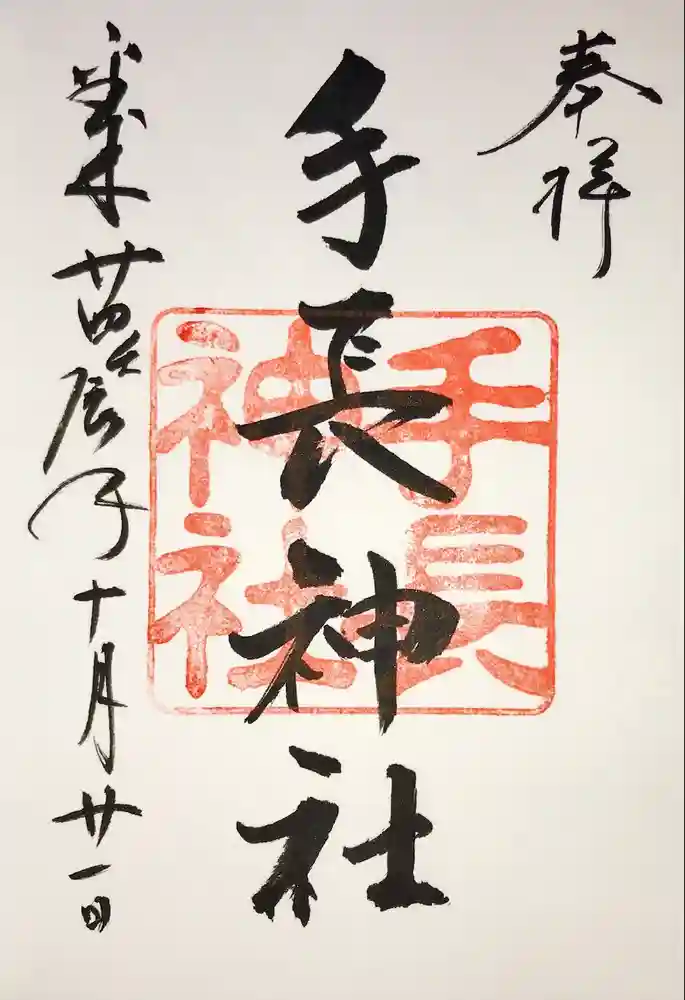 奉拝
手長神社
手長
神社
廿四辰年十月廿一日